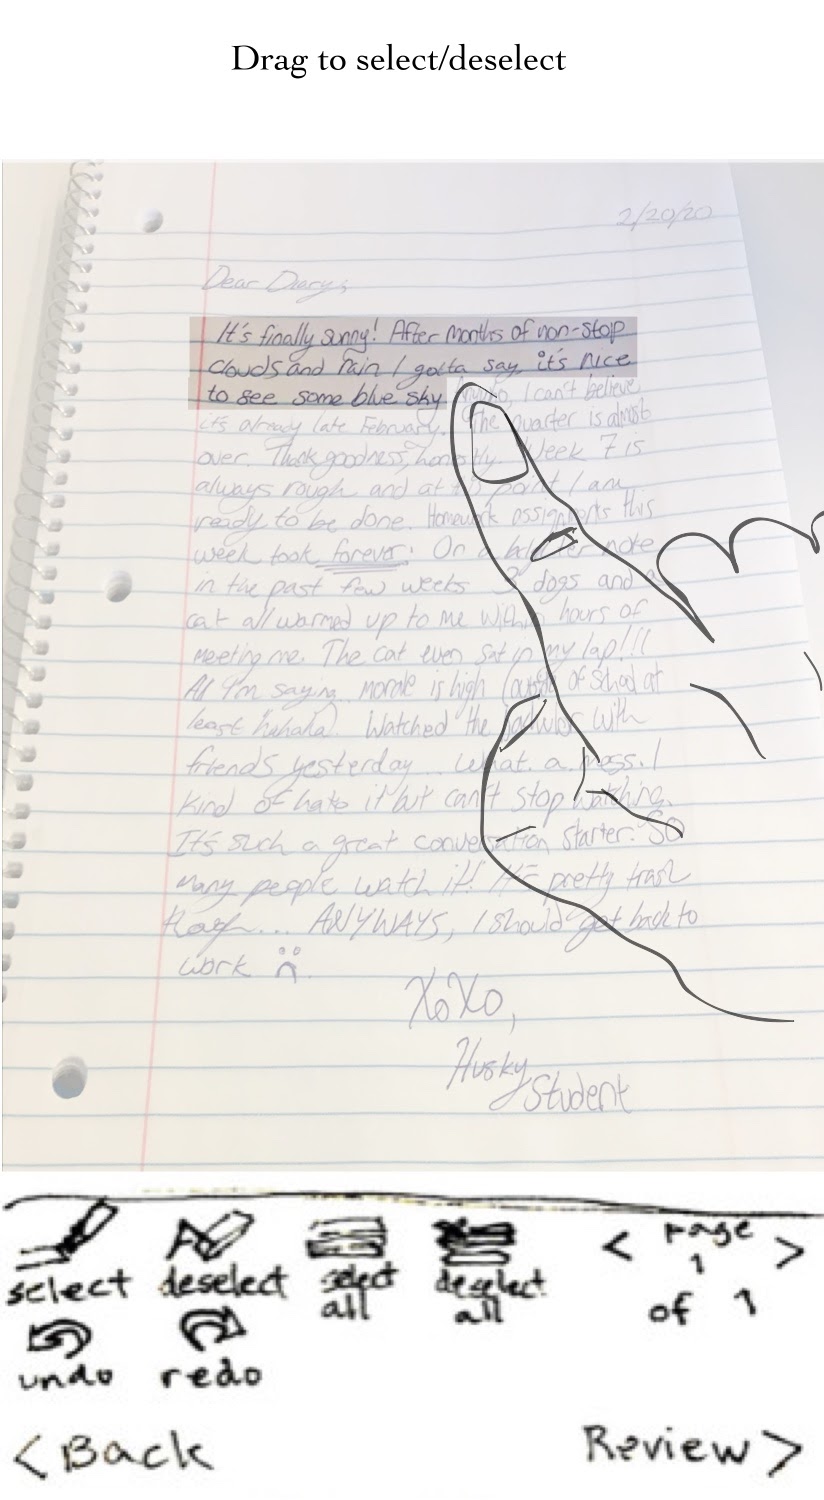 Drag to select/deselect
2/20/20
Dear Diary,
It's finally sunny! After months of non-stop
clouds and rain I gotta say it's nice
to see some blue sky. I can't believe
it's already late February. The quarter is almost
over. Thank goodness, honestly. Week 7 is
always rough and at point I am
ready to be done. Homework assignments this
week took forever. On a note
in the past few weeks 3 dogs and a
cat all warmed up to me within hours of
meeting me. The cat even sat in my lap!!!
All I'm saying morale is high (outside of school at
least hahaha). Watched the bachelor with
friends yesterday... What a mess. I
kind of hate it but can't stop watching.
It's such a great conversation starter. So
many people watch it! It's pretty trash
though... ANYWAYS, I should get back to
work
XoXo,
Husky
Student
select deselect select all deselect all < Page 1 of 1 >
undo redo
< Back Review >